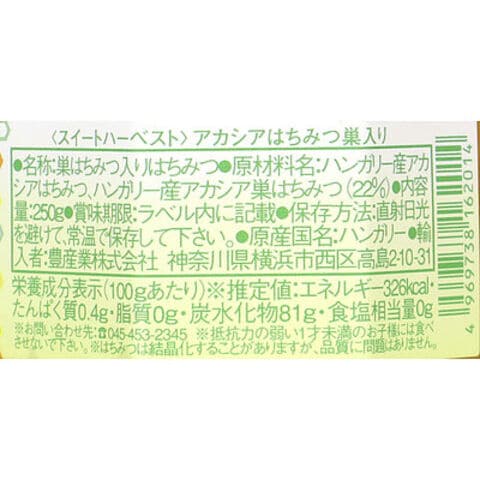 〈スイートハーベスト〉アカシアはちみつ巣入り
●名称:巣はちみつ入りはちみつ●原材料名:ハンガリー産アカ
シアはちみつ、ハンガリー産アカシア巣はちみつ(22%)●内容
量:250g●賞味期限:ラベル内に記載●保存方法:直射日光
を避けて、常温で保存して下さい。●原産国名:ハンガリー●輸
入者:豊産業株式会社 神奈川県横浜市西区高島2-10-31
栄養成分表示(100gあたり)※推定値:エネルギー326kcal・
たんぱく質0.4g・脂質0g・炭水化物81g・食塩相当量0g
※お問い合わせ先:☎045-453-2345 ※抵抗力の弱い1才未満のお子様には食べ
させないで下さい。※はちみつは結晶化することがありますが、品質に問題はありません。
4 969738 162014